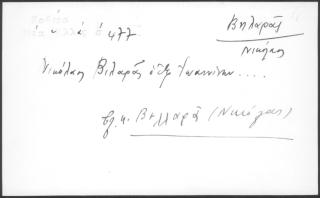 Βηλαρᾶς
Νικόλαος
477
Νικόλαος Βιλαρᾶς ὁ ἐξ Ἰωαννίνων ....
βλ. κ. Βελλαρᾶ (Νικόλαος)